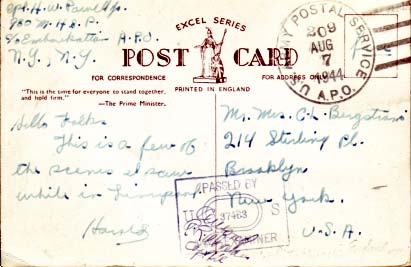 H.W.
EXCEL SERIES
POST CARD
FOR CORRESPONDENCE
FOR ADDRESS ONLY
PRINTED IN ENGLAND
N.Y., N.Y.
"This is the time for everyone to stand together,
and hold firm."
—The Prime Minister.
U.S. ARMY POSTAL SERVICE
209
AUG
7
1944
A.P.O.
Hello Folks
This is a few of
the scenes I saw
while in Liverpool
Harold
Mr. Mrs. C.L. Bergstrom
214 Sterling Pl.
Brooklyn
New York.
U.S.A.
PASSED BY
37463
S